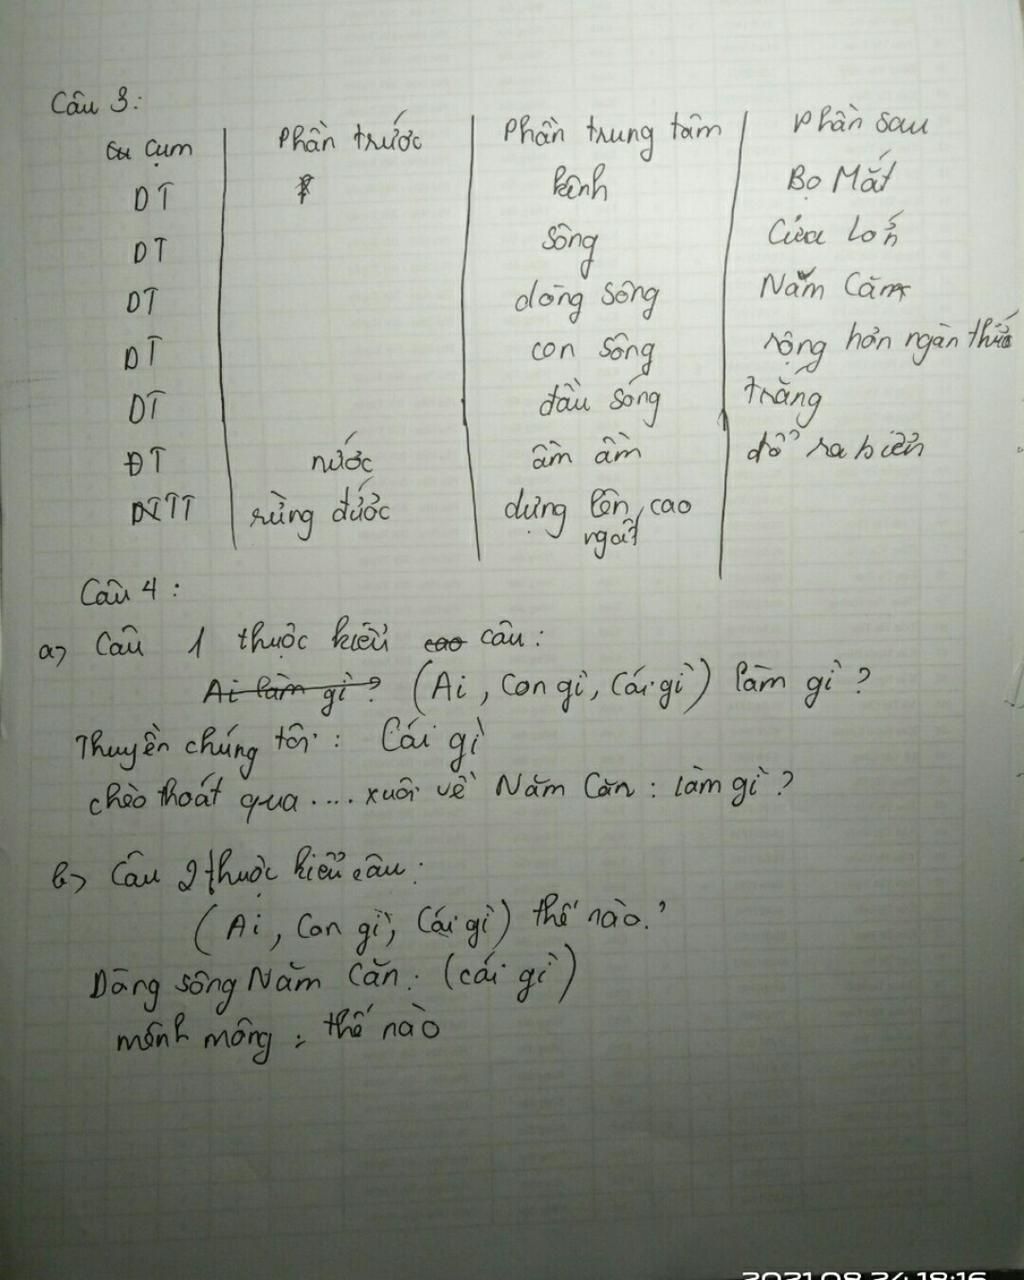 Câu 3:
Cụm | Phần trước | Phần trung tâm | Phần sau
DT | | kênh | Bọ Mắt
DT | | Sông | Cửa Lớn
DT | | dòng sông | Năm Căn
DT | | con sông | rộng hơn ngàn thước
DT | | đầu sóng | trắng
ĐT | nước | ầm ầm | đổ ra biển
TT | rừng đước | dựng lên, cao | 
ngất
Câu 4:
a) Câu 1 thuộc kiểu câu:
Ai làm gì? (Ai, Con gì, Cái gì) làm gì?
Thuyền chúng tôi: Cái gì
chèo thoát qua .... xuôi về Năm Căn: làm gì?
b) Câu 2 thuộc kiểu câu:
(Ai, Con gì, Cái gì) thế nào?
Dòng sông Năm Căn: (cái gì)
mênh mông: thế nào
2021.08.24 18:16